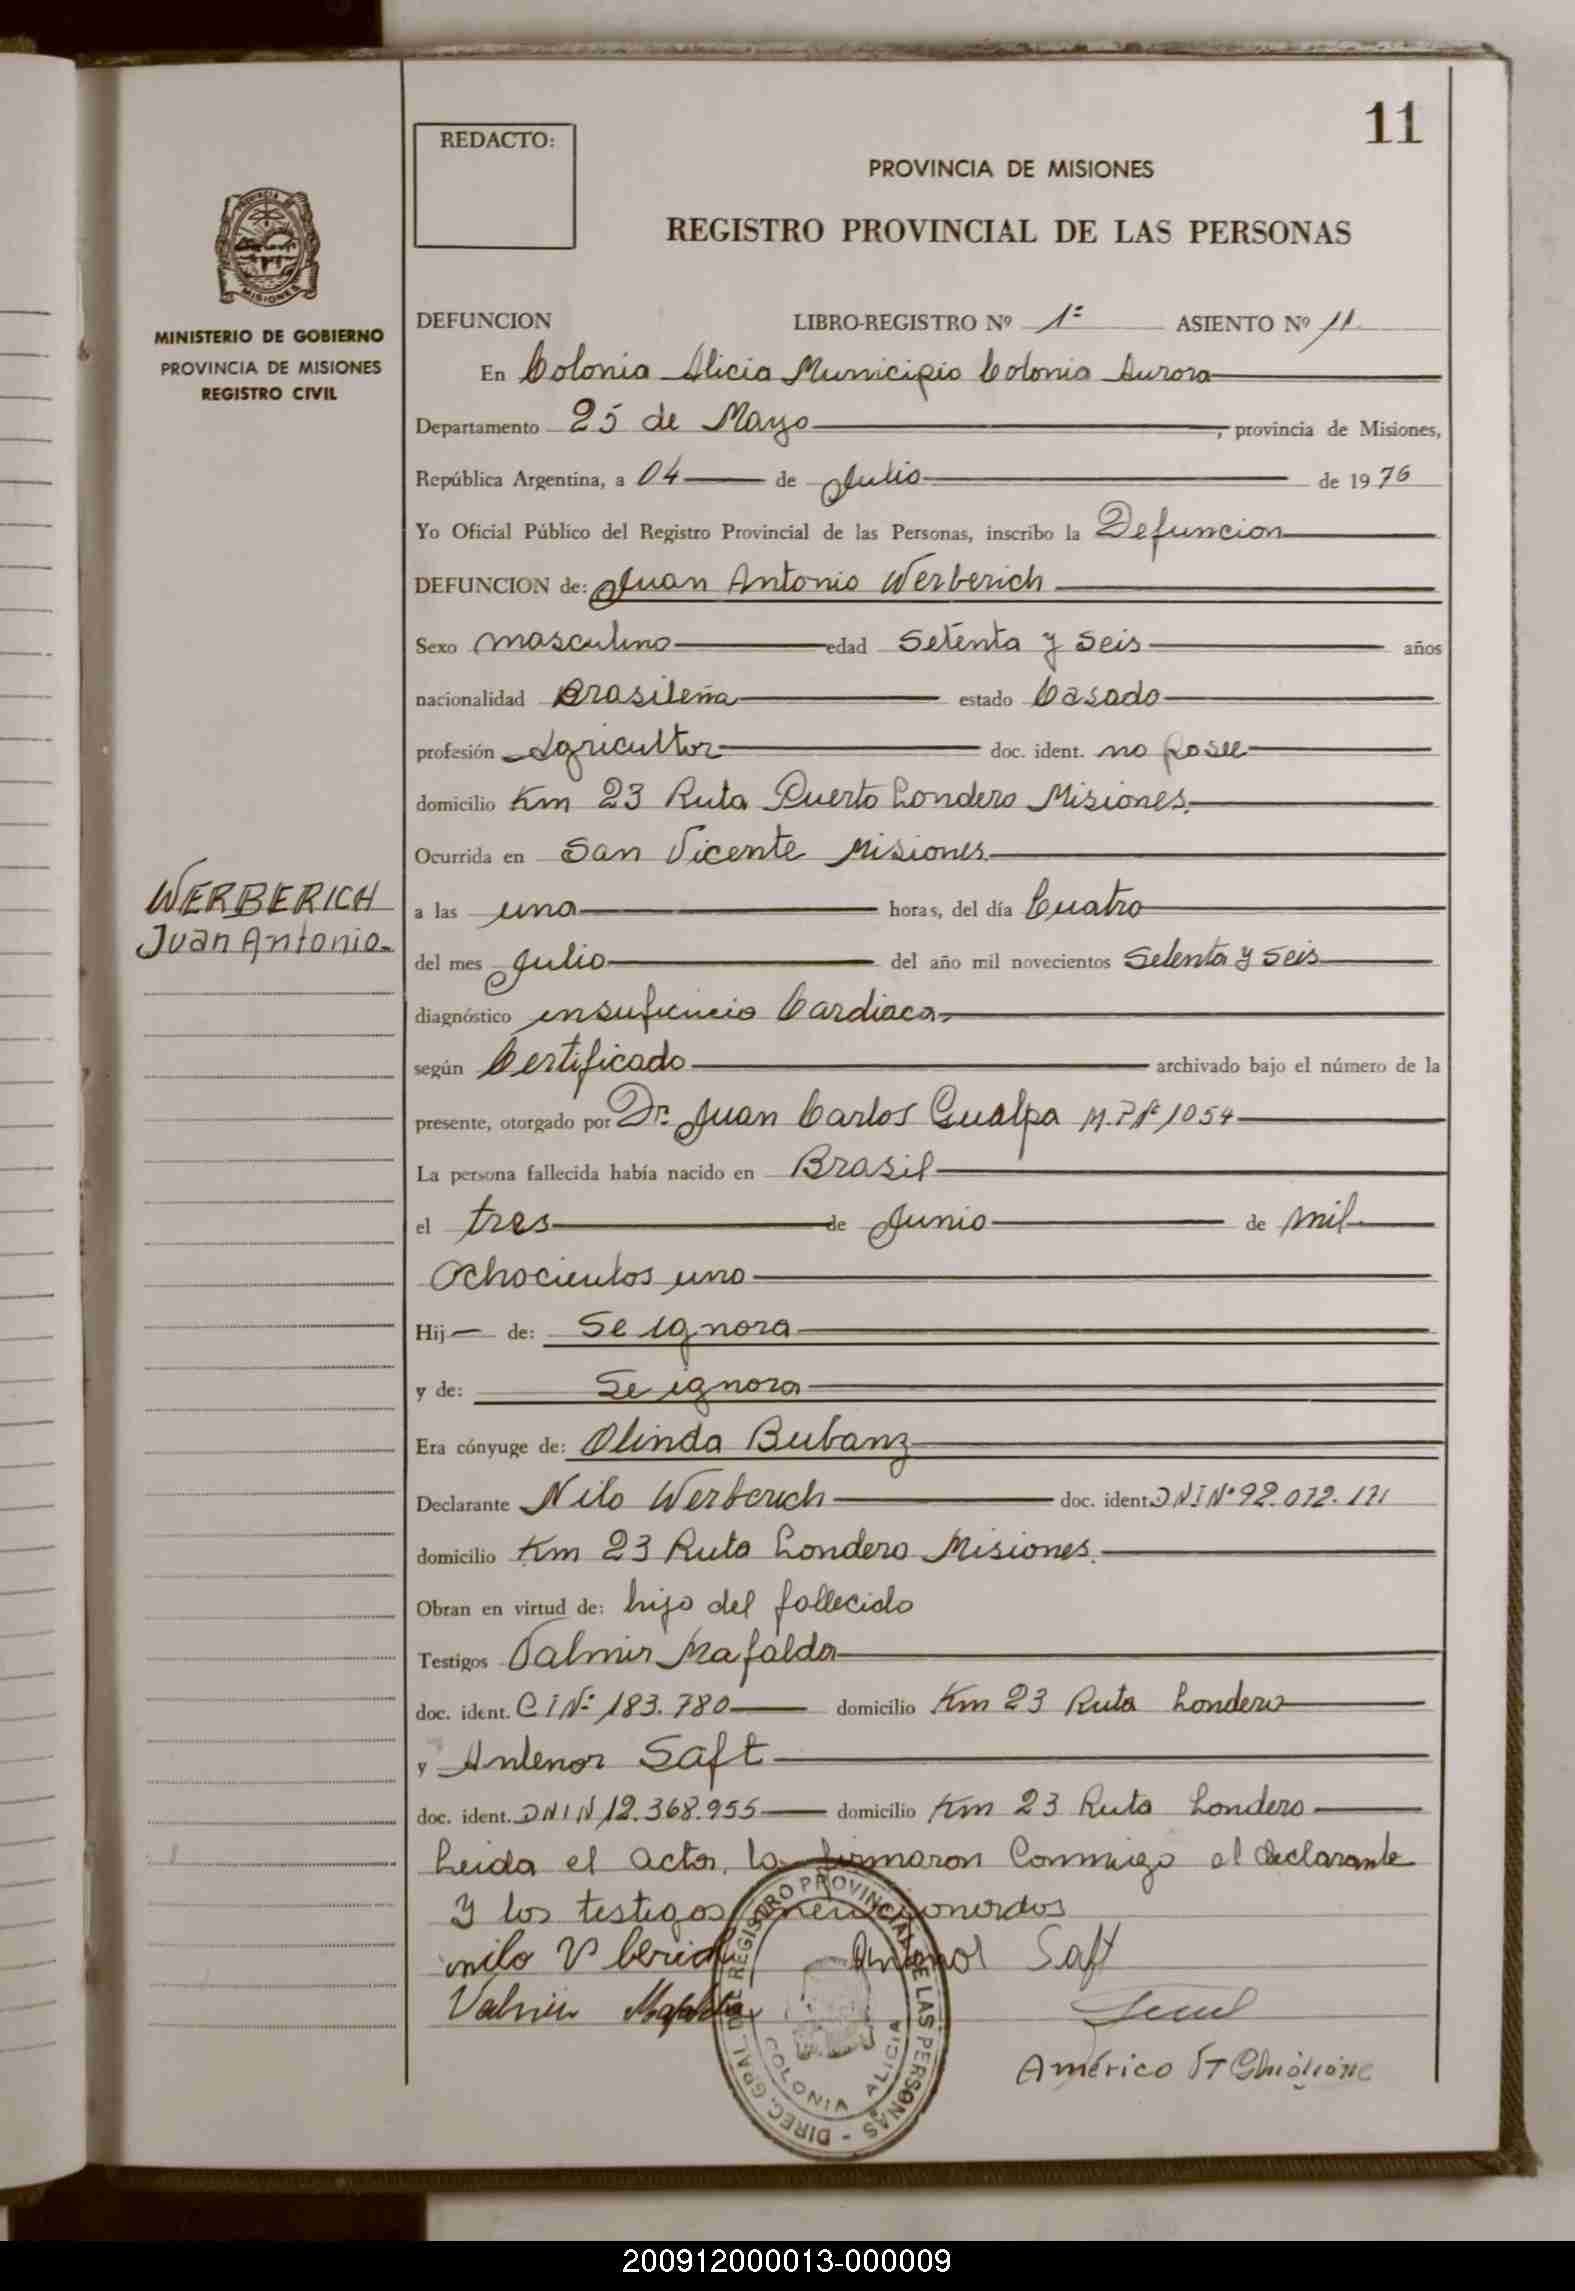 11
REDACTO:
PROVINCIA DE MISIONES
REGISTRO PROVINCIAL DE LAS PERSONAS
PROVINCIA DE
MISIONES
MINISTERIO DE GOBIERNO
PROVINCIA DE MISIONES
REGISTRO CIVIL
WERBERICH
Juan Antonio
DEFUNCION LIBRO-REGISTRO Nº 1º ASIENTO Nº 11
En Colonia Alicia Municipio Colonia Aurora
Departamento 25 de Mayo, provincia de Misiones,
República Argentina, a 04 de Julio de 1976
Yo Oficial Público del Registro Provincial de las Personas, inscribo la Defuncion
DEFUNCION de: Juan Antonio Werberich
Sexo masculino edad Setenta y Seis años
nacionalidad Brasileña estado Casado
profesión Agricultor doc. ident. no posee
domicilio Km 23 Ruta Puerto Londero Misiones.
Ocurrida en San Vicente Misiones
a las una horas, del día Cuatro
del mes Julio del año mil novecientos Setenta y Seis
diagnóstico insuficiencia Cardiaca
según Certificado archivado bajo el número de la
presente, otorgado por Dr. Juan Carlos Gualpa M.P Nº 1054
La persona fallecida había nacido en Brasil
el tres de Junio de mil
Ochocientos uno
Hij— de: Se ignora
y de: Se ignora
Era cónyuge de: Olinda Bubanz
Declarante Nilo Werberich doc. ident. DNI Nº 92.072.171
domicilio Km 23 Ruta Londero Misiones.
Obran en virtud de: hijo del fallecido
Testigos Valmir Mafalda
doc. ident. CI Nº 183.780 domicilio Km 23 Ruta Londero
y Antenor Saft
doc. ident. DNI N 12.368.955 domicilio Km 23 Ruta Londero
Leida el acta, la firmaron Conmigo el declarante
y los testigos mencionados
nilo Antenor Saft
Valmir Mafalda
Américo
DIREC. GRAL. DEL REGISTRO PROVINCIAL DE LAS PERSONAS -
COLONIA ALICIA
200912000013-000009